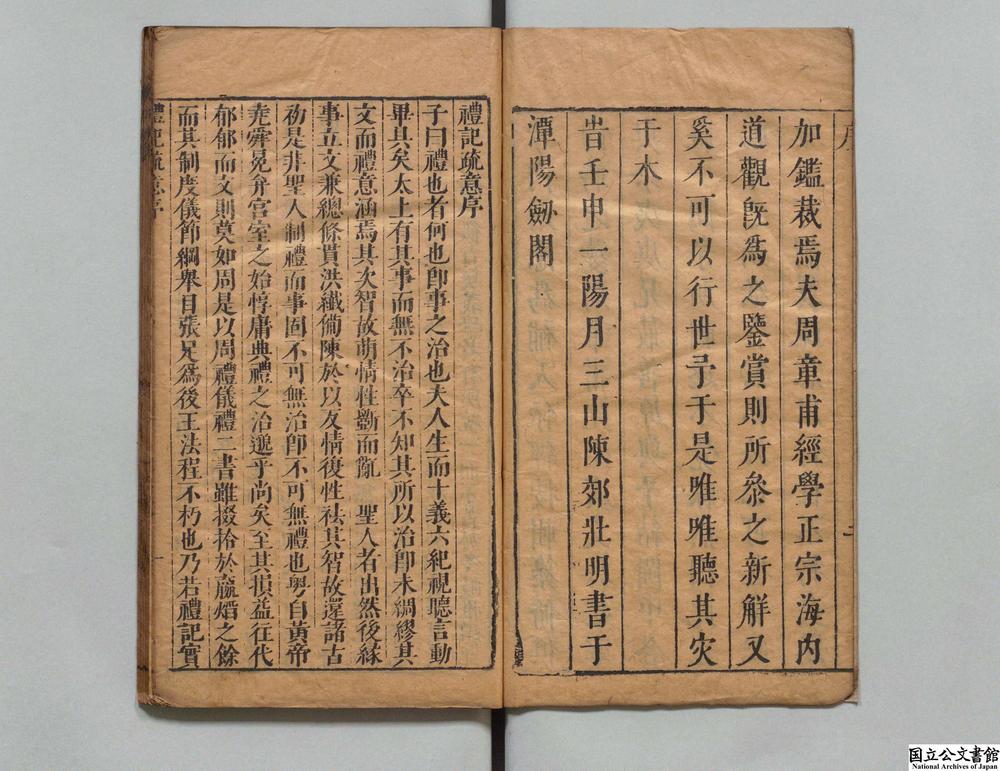 序
加鑑裁焉夫周章甫經學正宗海内
道觀旣為之鑒賞則所叅之新解又
奚不可以行世予于是唯唯聽其灾
于木
旹壬申一陽月三山陳郊壯明書于
潭陽劒閣
禮記疏意序
子曰禮也者何也卽事之治也夫人生而十義六紀視聽言動
畢具矣太上有其事而無不治卒不知其所以治卽未綢繆其
文而禮意涵焉其次智故萌情性斵而亂聖人者出然後緣
事立文兼總條貫洪纖備陳於以友情復性袪其智故還諸古
初是非聖人制禮而事固不可無治卽不可無禮也粤自黃帝
尭舜冕弁宮室之始惇庸典禮之治邈乎尚矣至其損益往代
郁郁而文則莫如周是以周禮儀禮二書雖掇拾於嬴燼之餘
而其制度儀節綱舉目張足爲後王法程不朽也乃若禮記實
禮記疏意序
一
国立公文書館
National Archives of Japan